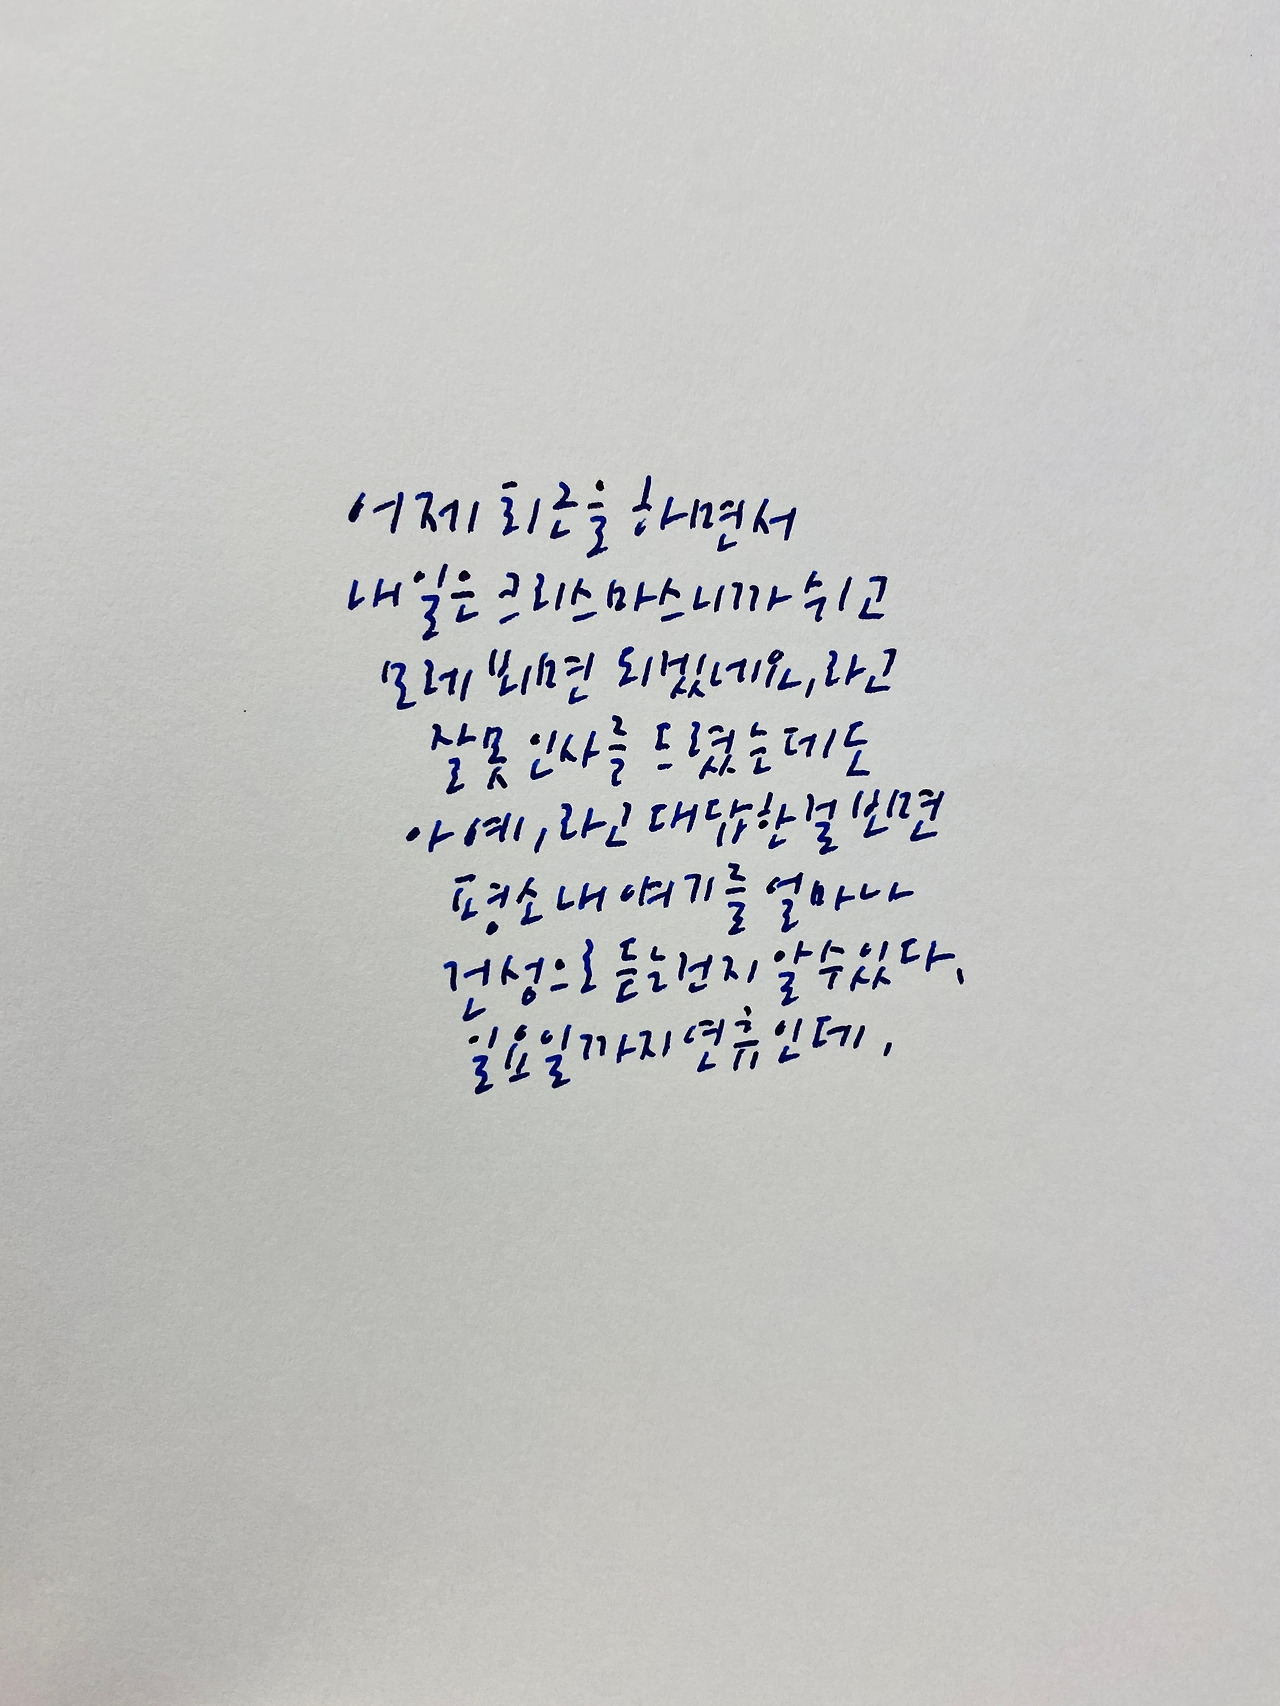 어제 퇴근을 하면서
내일은 크리스마스니까 쉬고
모레 뵈면 되겠네요, 라고
잘못 인사를 드렸는데도
아 예, 라고 대답한 걸 보면
평소 내 얘기를 얼마나
건성으로 듣는건지 알 수 있다.
일요일까지 연휴인데,